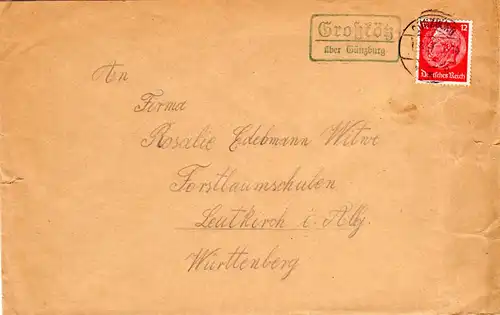 Großkötz
über Günzburg
12
Deutsches Reich
An
Firma
Rosalie Edelmann Witwe
Forstbaumschulen
Leutkirch i. Allg.
Württemberg